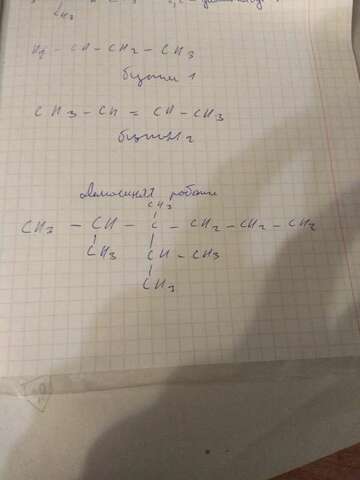 CH3
H2 - CH - CH2 - CH3
бутен 1
CH3 - CH = CH - CH3
бутен 2
Домашняя работа
CH3
CH3 - CH - C - CH2 - CH2 - CH3
CH3 CH - CH3
CH3